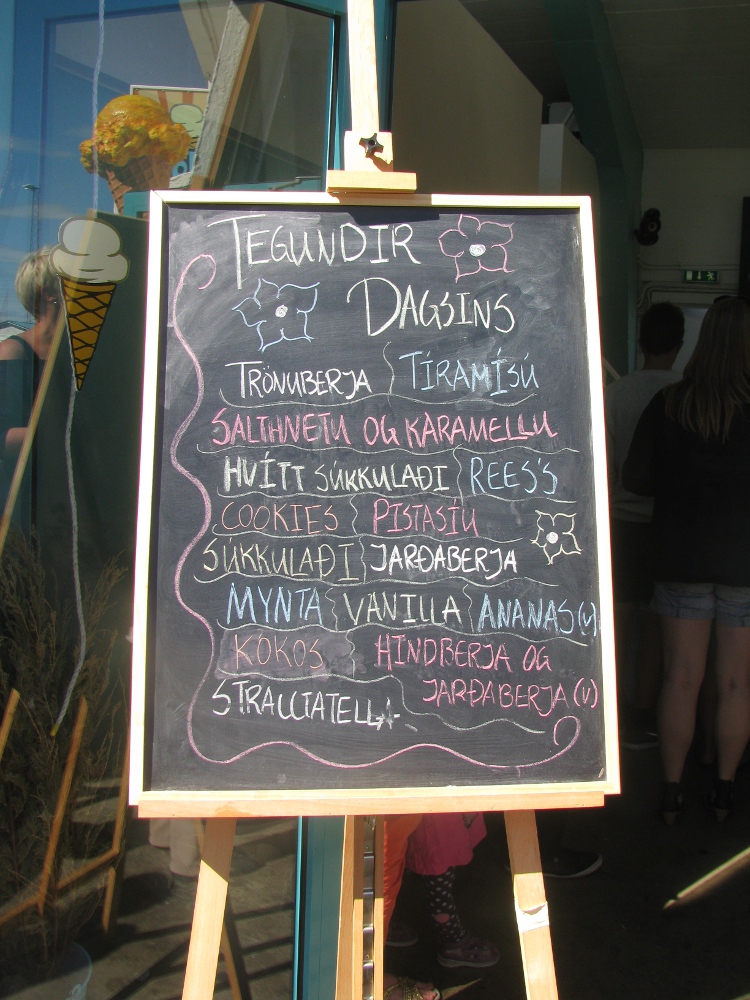 TEGUNDIR
DAGSINS
TRÖNUBERJA TÍRAMÍSÚ
SALTHNETU OG KARAMELLU
HVÍTT SÚKKULAÐI REES'S
COOKIES PISTASÍU
SUKKULAÐI JARÐABERJA
MYNTA VANILLA ANANAS (V)
KOKOS HINDBERJA OG
JARÐABERJA (V)
STRACCIATELLA